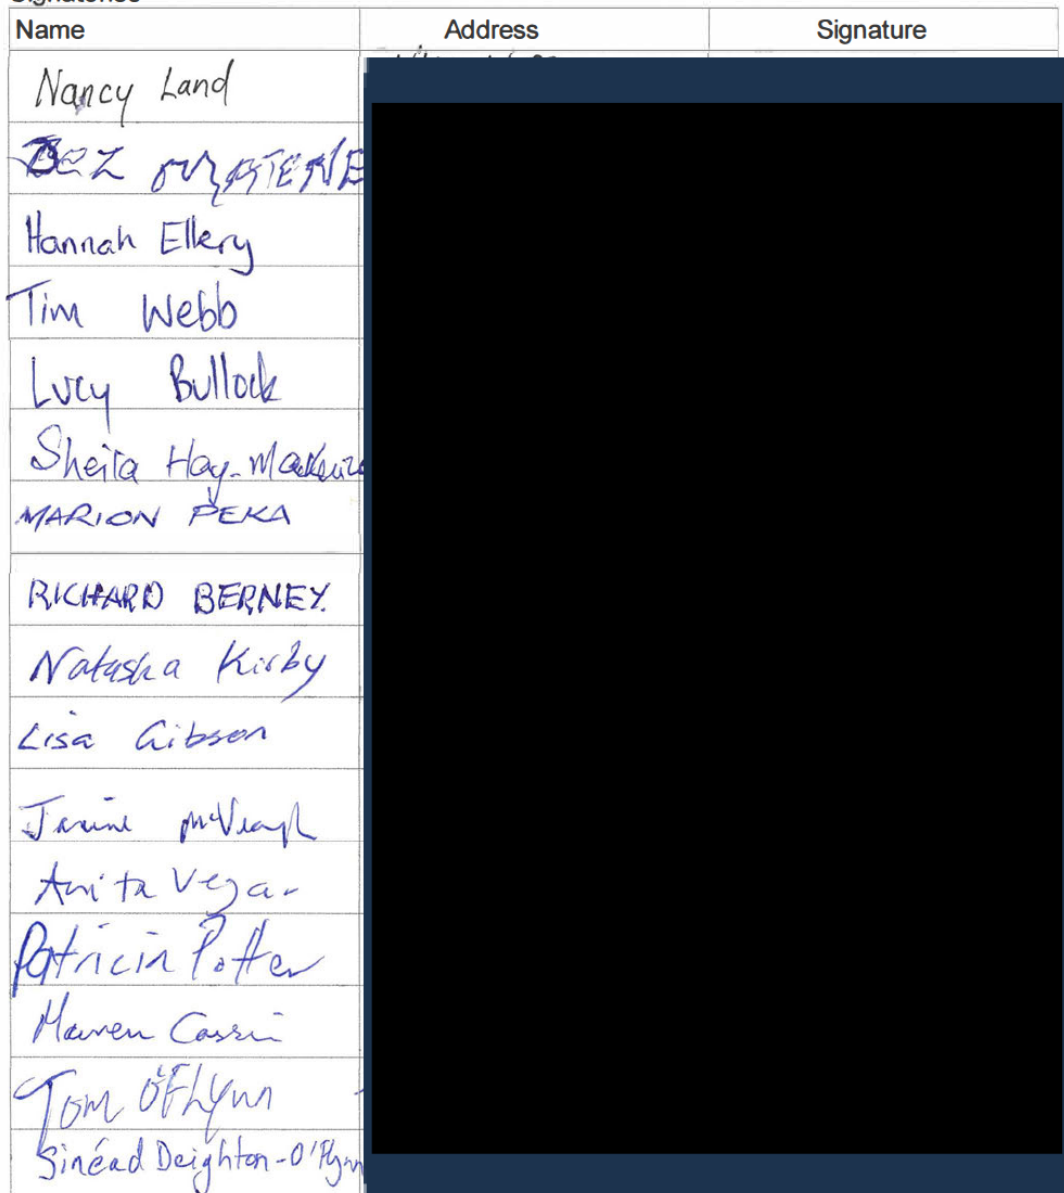 Name Address Signature
Nancy Land
Hannah Ellery
Tim Webb
Lucy Bullock
Sheila Hay-Mackenzie
MARION PEKA
RICHARD BERNEY.
Natasha Kirby
Lisa Gibson
Janine McVeagh
Anita Vega
Patricia Potter
Mauren
Tom O'Flynn
Sinéad Deighton-O'Flynn